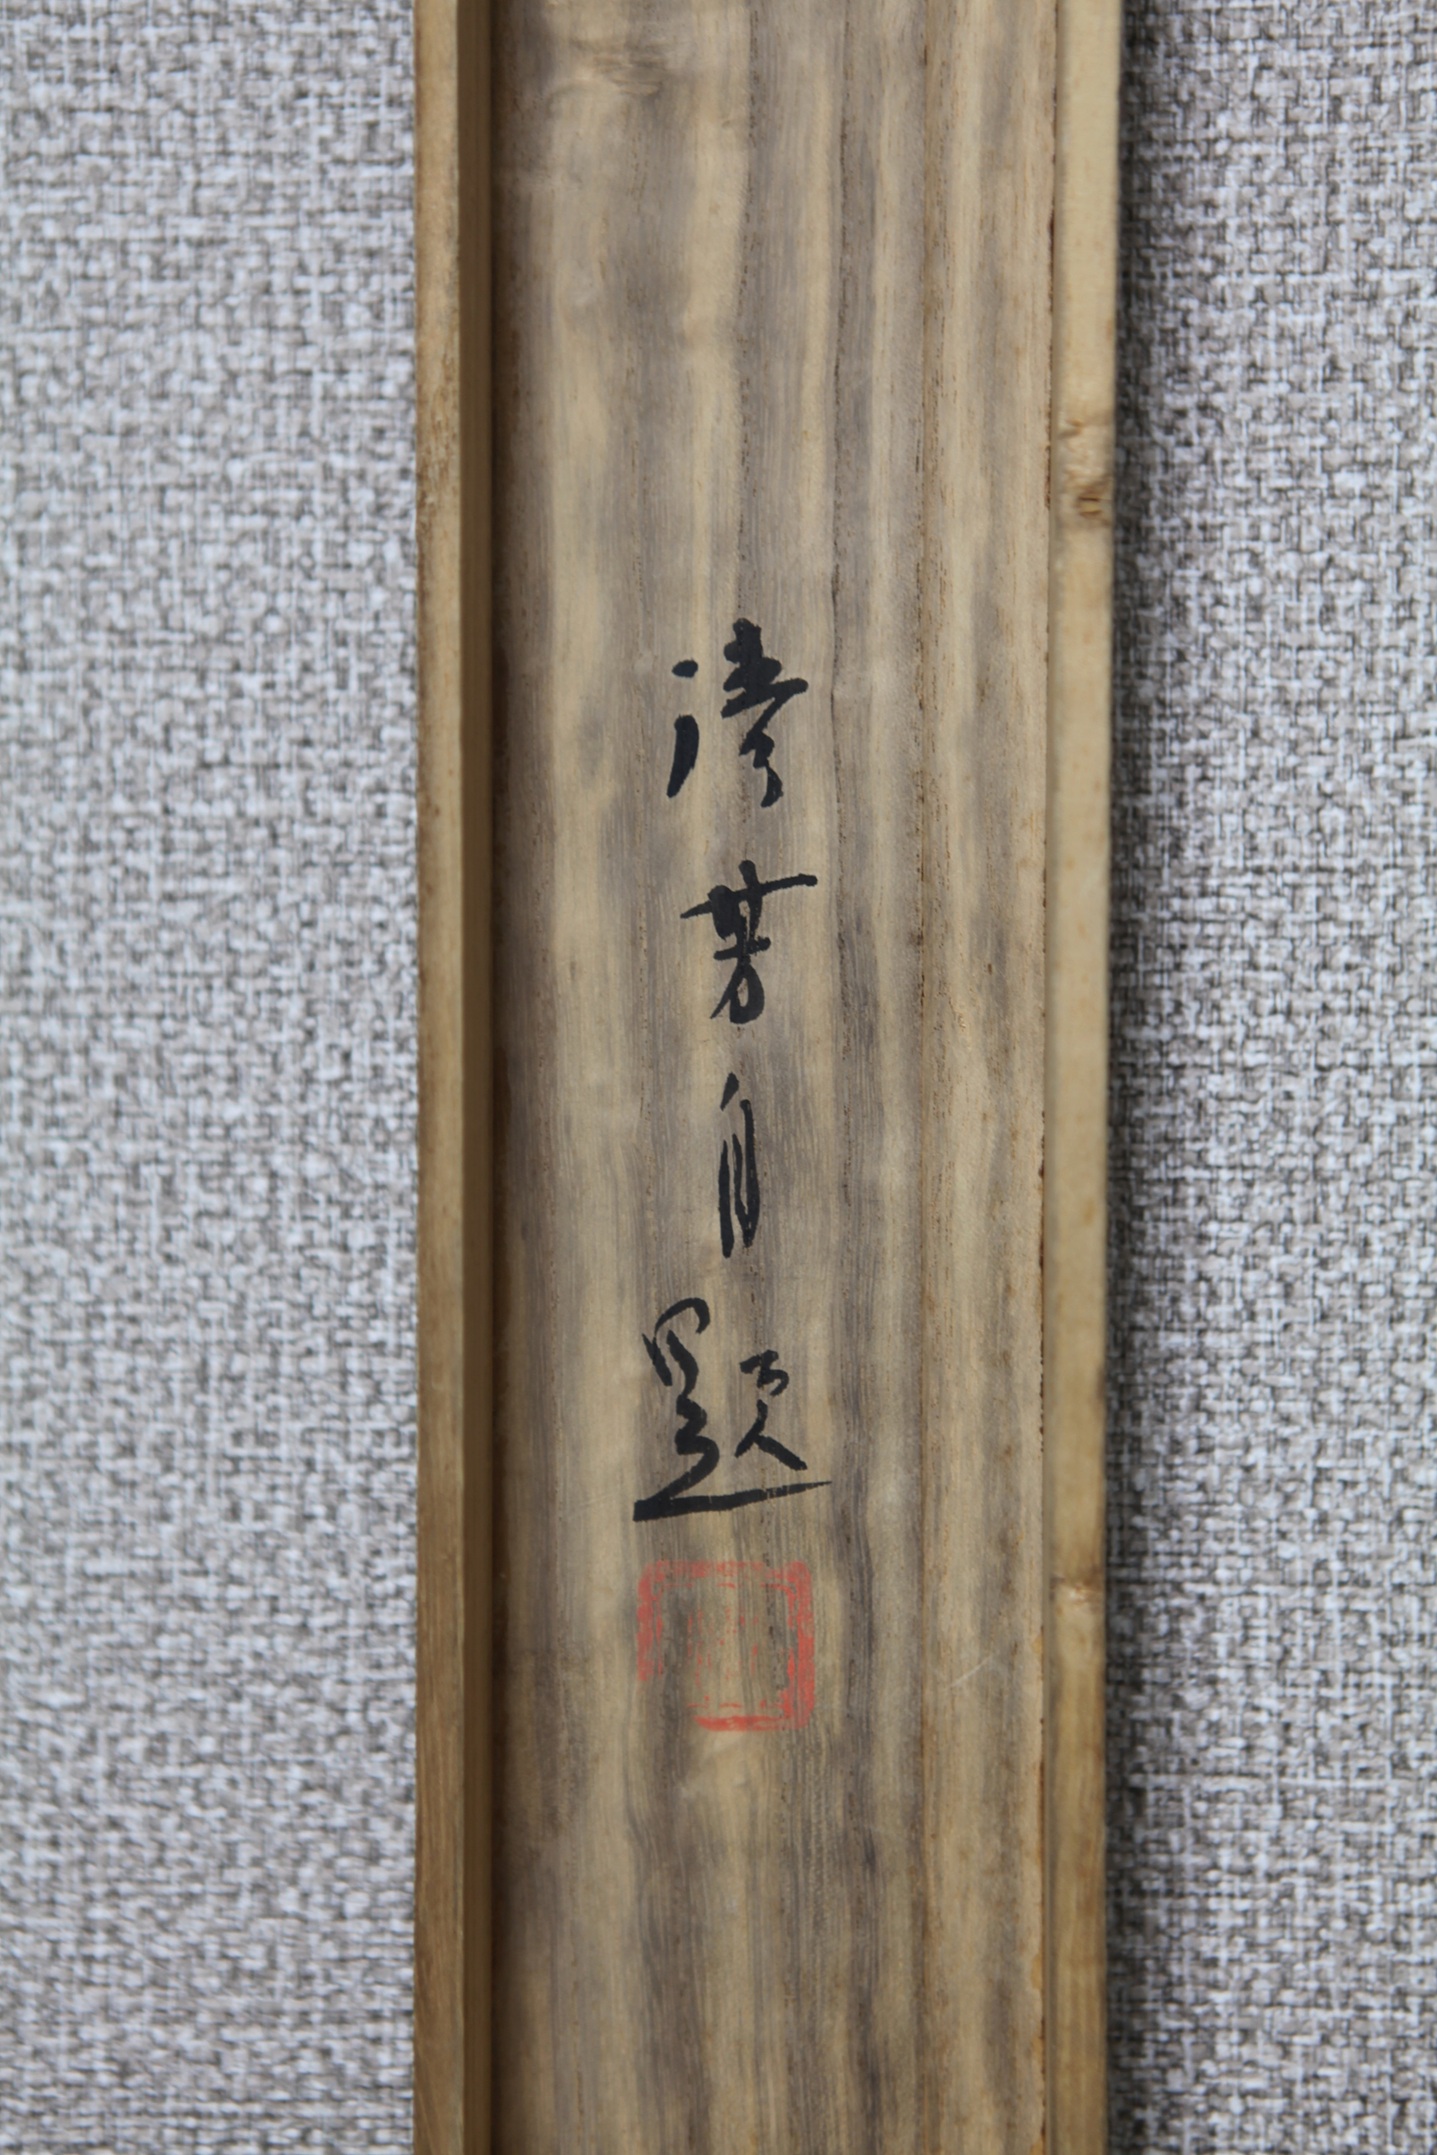 清芳自題